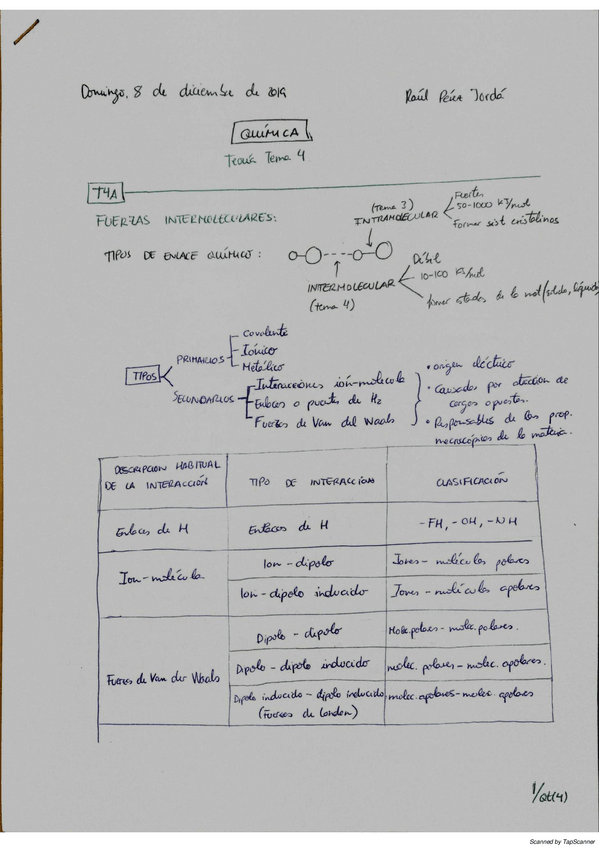 Domingo, 8 de diciembre de 2019
Raúl Pérez Jordá
QUÍMICA
Teoría Tema 4
T4A
FUERZAS INTERMOLECULARES:
TIPOS DE ENLACE QUÍMICO:
(tema 3)
INTRAMOLECULAR
Fuertes
50-1000 KJ/mol
Forman sist cristalinos
INTERMOLECULAR
(tema 4)
Débil
10-100 KJ/mol
forman estados de la mat (sólido, líquido)
TIPOS
PRIMARIOS
Covalente
Iónico
Metálico
SECUNDARIOS
Interacciónes ión-molecula
Enlaces o puentes de H2
Fuerzas de Van del Waals
• origen eléctrico
• Causadas por atracción de
cargas opuestas.
• Responsables de las prop.
macroscópicas de la materia.
DESCRIPCIÓN HABITUAL
DE LA INTERACCIÓN
TIPO DE INTERACCIÓN
CLASIFICACIÓN
Enlaces de H
Enlaces de H
-FH, -OH, -NH
Ion-molécula
Ion-dipolo
Iones-moléculas polares
Ion-dipolo inducido
Iones-moléculas apolares
Fuerzas de Van der Waals
Dipolo-dipolo
Molec.polares-molec.polares.
Dipolo-dipolo inducido
molec. polares-molec. apolares.
Dipolo inducido-dipolo inducido
(Fuerzas de London)
molec.apolares-molec. apolares
1/Qt(4)
Scanned by TapScanner